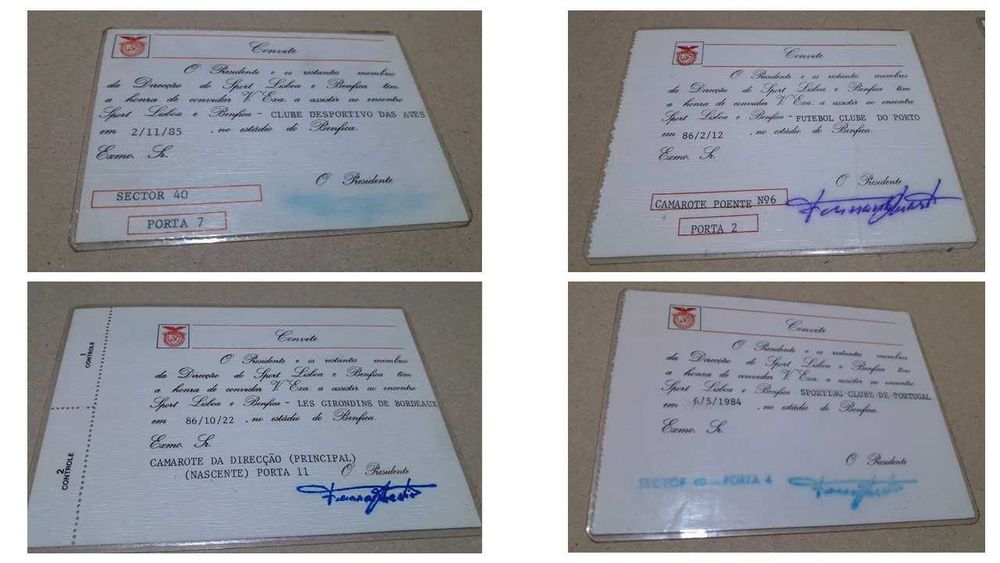 Convite
O Presidente e os restantes membros
da Direcção do Sport Lisboa e Benfica têm
a honra de convidar V. Exa. a assistir ao encontro
Sport Lisboa e Benfica - CLUBE DESPORTIVO DAS AVES
em 2/11/85 , no estádio do Benfica.
Exmo. Sr.
O Presidente
SECTOR 40
PORTA 7
Convite
O Presidente e os restantes membros
da Direcção do Sport Lisboa e Benfica têm
a honra de convidar V. Exa. a assistir ao encontro
Sport Lisboa e Benfica - FUTEBOL CLUBE DO PORTO
em 86/2/12 , no estádio do Benfica.
Exmo. Sr.
O Presidente
CAMAROTE POENTE Nº6
PORTA 2
1
CONTROLE
2
CONTROLE
Convite
O Presidente e os restantes membros
da Direcção do Sport Lisboa e Benfica têm
a honra de convidar V. Exa. a assistir ao encontro
Sport Lisboa e Benfica - LES GIRONDINS DE BORDEAUX
em 86/10/22 , no estádio do Benfica.
Exmo. Sr.
CAMAROTE DA DIRECÇÃO (PRINCIPAL)
(NASCENTE) PORTA 11 O Presidente
Convite
O Presidente e os restantes membros
da Direcção do Sport Lisboa e Benfica têm
a honra de convidar V. Exa. a assistir ao encontro
Sport Lisboa e Benfica SPORTING CLUBE DE PORTUGAL
em 6/5/1984 , no estádio do Benfica.
Exmo. Sr.
O Presidente
SECTOR - PORTA 4